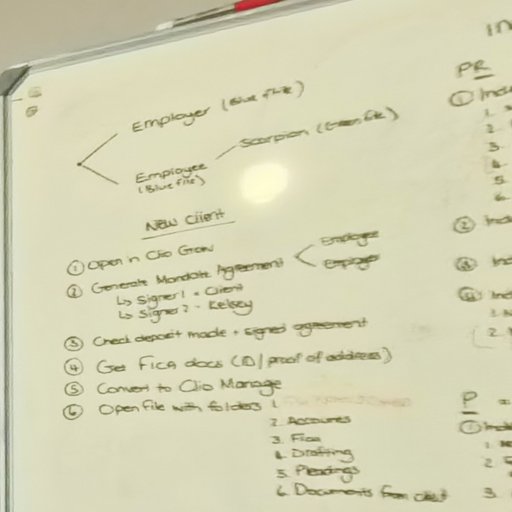 Employer (Blue file)
Employee
(Blue file)
Scorpion (Green file)
New Client
① Open in Clio Grow
② Generate Mandate Agreement
Employee
Employer
↳ Signer 1 = Client
↳ Signer 2 - Kelsey
③ Check deposit made + signed agreement
④ Get Fica docs (ID/proof of address)
⑤ Convert to Clio Manage
⑥ Open file with folders 1.
2. Accounts
3. Fica
4. Drafting
5. Pleadings
6. Documents from client
PR
①
1.
2.
3.
4.
5.
6.
②
P =
①
1.
2.
3.